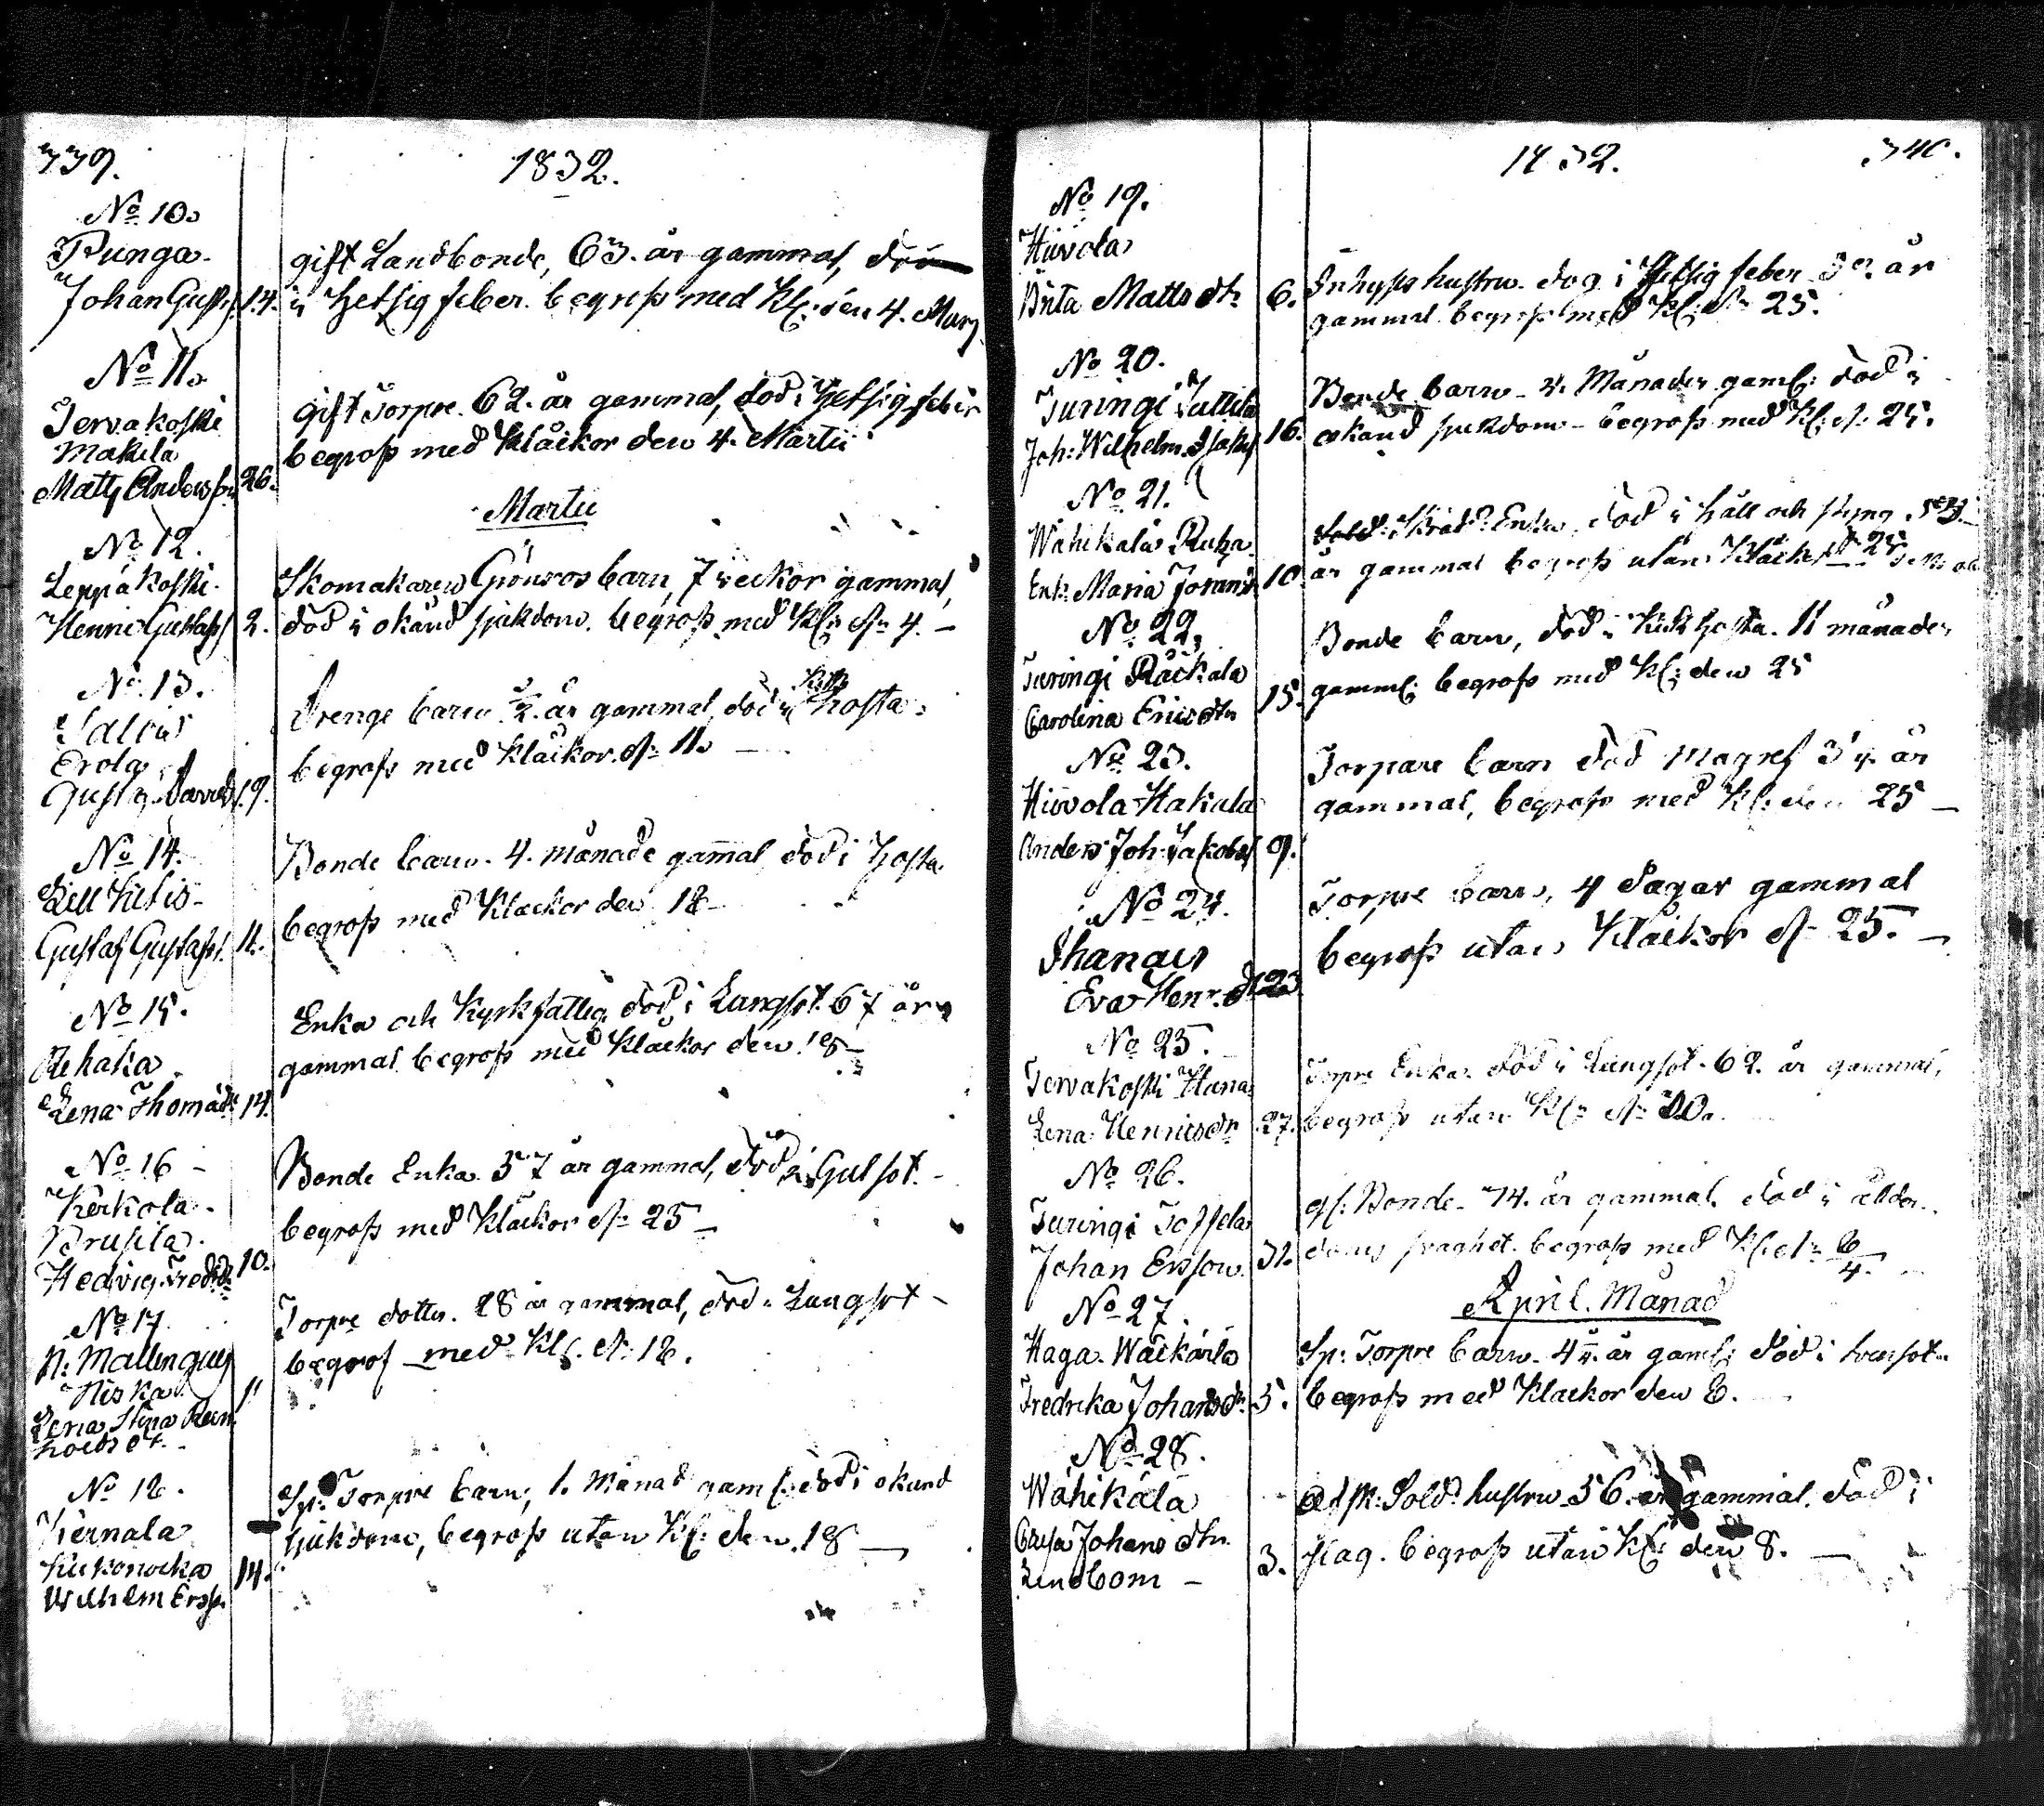 339.
1832.
No 10.
Punga
Johan Gustafs 14.
gift Landbonde, 63. år gammal, död
i Hetsig feber. begrofs med Kl: den 4. Mars
No 11.
Tervakoski
Makila
Matts Andersson 26.
gift Torpre. 62. år gammal, död i Hetsig feber
begrofs med Klåckor den 4. Martii
Martii
No 12.
Leppäkoski
Henric Gustafss 2.
Skomakaren Grönros barn, 7 veckor gammal,
död i okänd sjukdom. begrofs med Kl: d: 4. –
No 13.
Erola
Gustaf 9.
Drenge barn ½ år gammal, död i Kik hosta
begrofs med Klåckor d: 11.
No 14.
Lill Hietis
Gustaf Gustafss. 11.
Bonde barn. 4. månade gammal död i Hosta
begrofs med Klåckor den 18
No 15.
Rehaka
Lena Thomasdr 14.
Enka och Kyrkfattig, död i Lungsot. 67 år
gammal begrofs med Klåckor den 18
No 16
Kerkola
Prusila
Hedvig Fredrdr 10.
Bonde Enka. 57 år gammal, död i Gulsot. –
begrofs med Klåckor d: 25 –
No 17.
N: Mallinguis
Niska
Lena Stina Rein
holdsdr. –
11
Torpre dotter. 28 år gammal, död i Lungsot –
begrof med Kl: d: 18.
No 18.
Kernala
Kukonocka
Wilhelm Erss 14.
Sp: Torpre barn, 1. Månad gaml: död i okänd
sjukdom, begrofs utan Kl: den 18 –
1832.
340.
No 19.
Hiivola
Brita Matts dtr 6.
Inhyses hustru. dog i Hetsig feber år
gammal. begrofs med Kl: d: 25.
No 20.
Turingi Juttila
Joh: Wilhelm Isaks 16.
Bonde barn – 4. Månader gaml: död i
okänd sjukdom – begrofs med Kl: d: 25.
No 21.
Wähikälä Ruha
Enk: Maria Johans 10.
Enka, död i håll och styng
år gammal begrofs utan Klåck d: 25
No 22.
Turingi Räckälä
Carolina Ericsdtr 15.
Bonde barn, död i Kikhosta. 11 månader
gaml: begrofs med Kl: den 25
No 23.
Hiivola Hakala
Anders Joh: Jakobs 9.
Torpare barn död Magref 3¼ år
gammal, begrofs med Kl: den 25 –
No 24.
Ihanais
Eva Henr. dr 23
Torpre barn, 4 dagar gammal
begrofs utan Klåckor d: 25. –
No 25.
Tervakoski Hana
Lena Henricsdr 27.
Torpre Enka. död i Lungsot. 62. år gammal,
begrofs utan Kl: d:
No 26.
Turingi Toffela
Johan Ersson 31.
gl: Bonde – 74. år gammal. död i ålder
doms svaghet. begrofs med Kl: d: 8/4.
April. Månad
No 27.
Haga. Wäckärlä
Fredrika Johansdr 5.
Sp: Torpre barn. 4¼ år gaml: död i
begrofs med Klåckor den 8.
No 28.
Wähikälä
Cajsa Johans dtr.
Lindbom – 3.
Afsk: Sold: hustru 56. år gammal. död i
slag. begrofs utan Kl: den 8. –